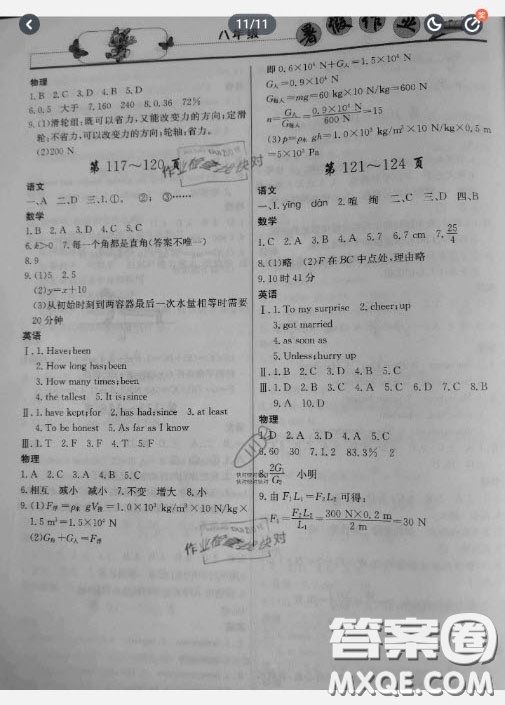 11/11
八年级
暑假作业
物理
1. B 2. C 3. D 4. B 5. D
6. 0.5 大于 7. 160 240 8. 0.36 72%
9. (1)滑轮组:既可以省力,又能改变力的方向;定滑
轮:不省力,可以改变力的方向;轮轴:省力。
(2)200 N
第 117～120 页
语文
一、A 二、D 三、1. ①, ②; ③……
数学
1. B 2. A 3. D 4. C 5. C
6. k>0 7. 每一个角都是直角(答案不唯一)
8. 9
9. (1)5 2.5
(2)y=x+10
(3)从初始时刻到两容器最后一次水量相等时需要
20 分钟
英语
Ⅰ. 1. Have;been
2. How long has;been
3. How many times;been
4. the tallest 5. It is;since
Ⅱ. 1. have kept;for 2. has had;since 3. at least
4. To be honest 5. As far as I know
Ⅲ. 1. T 2. F 3. F 4. T 5. F
物理
1. A 2. C 3. A 4. B 5. C
6. 相互 减小 减小 7. 不变 增大 8. 小
9. (1)F浮=ρ水gV排=1.0×10³ kg/m³×10 N/kg×
1.5 m³=1.5×10⁴ N
(2)G舟+G人=F浮
即 0.6×10⁴ N+G人=1.5×10⁴ N
G人=0.9×10⁴ N
G每人=mg=60 kg×10 N/kg=600 N
n=G人/G每人=0.9×10⁴ N/600 N=15
(3)p=ρ水gh=1.0×10³ kg/m³×10 N/kg×0.5 m
=5×10³ Pa
第 121～124 页
语文
一、1. yīng dàn 2. 喧 绚 二、C 三、D 四、B
数学
1. C 2. D 3. B 4. A 5. 7 6. 7 cm 7. 25/4
8. (1)略 (2)F 在 BC 中点处,理由略
9. 10 时 41 分
英语
Ⅰ. 1. To my surprise 2. cheer;up
3. got married
4. as soon as
5. Unless;hurry up
Ⅱ. 1. D 2. B 3. D 4. A 5. C
Ⅲ. 1. D 2. A 3. C 4. B 5. D 6. D 7. C 8. B
9. A 10. D
物理
1. D 2. A 3. D 4. A 5. C
6. 60 30 7. 1.2 83.3% 2
8. 2G₁/G₂ 小明
9. 由 F₁L₁=F₂L₂ 可得:
F₁=F₂L₂/L₁=300 N×0.2 m/2 m=30 N
作业检查 快对
作业检查 快对
答案圈
MXQE.COM